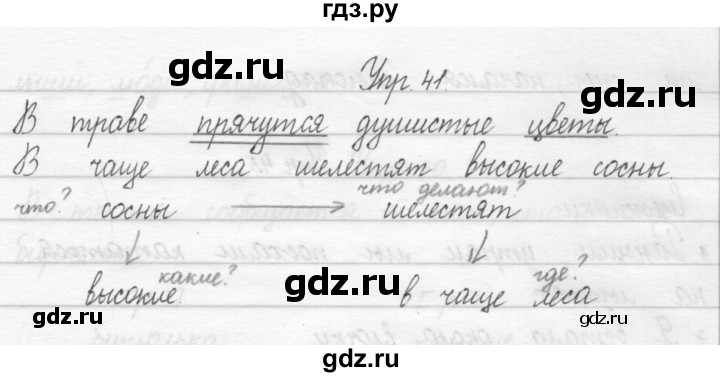 гдз.ру
gdz.ru gdz.ru
Упр. 41.
В траве прячутся душистые цветы.
В чаще леса шелестят высокие сосны.
что? сосны → что делают? шелестят
gdz.ru gdz.ru
какие? где?
высокие. в чаще леса
gdz.ru gdz.ru
gdz.ru